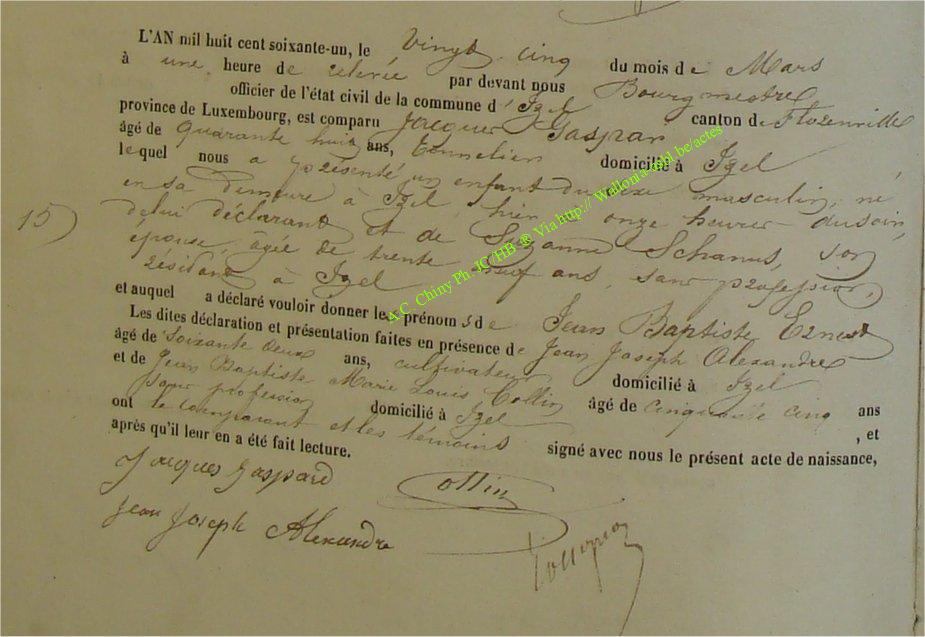 L'AN mil huit cent soixante-un, le Vingt cinq du mois de Mars
à une heure de relevée par devant nous Bourgmestre
officier de l'état civil de la commune d'Izel canton de Florenville
province de Luxembourg, est comparu Jacques Gaspar
âgé de quarante huit ans, tonnelier domicilié à Izel
lequel nous a présenté un enfant du sexe masculin, né
en sa demeure à Izel, hier, onze heures du soir,
15) de lui déclarant et de Suzanne Schanus, son
épouse, âgée de trente neuf ans, sans profession,
résidant à Izel
et auquel a déclaré vouloir donner les prénoms de Jean Baptiste Ernest
Les dites déclaration et présentation faites en présence de Jean Joseph Alexandre
âgé de soixante deux ans, cultivateur domicilié à Izel
et de Jean Baptiste Marie Louis Collin âgé de cinquante cinq ans
sans profession domicilié à Izel , et
ont le comparant et les témoins signé avec nous le présent acte de naissance,
après qu'il leur en a été fait lecture.
Jacques Gaspard Collin
Jean Joseph Alexandre
A.C. Chiny Ph. JC/HB ® Via http:// Wallonia-asbl be/actes